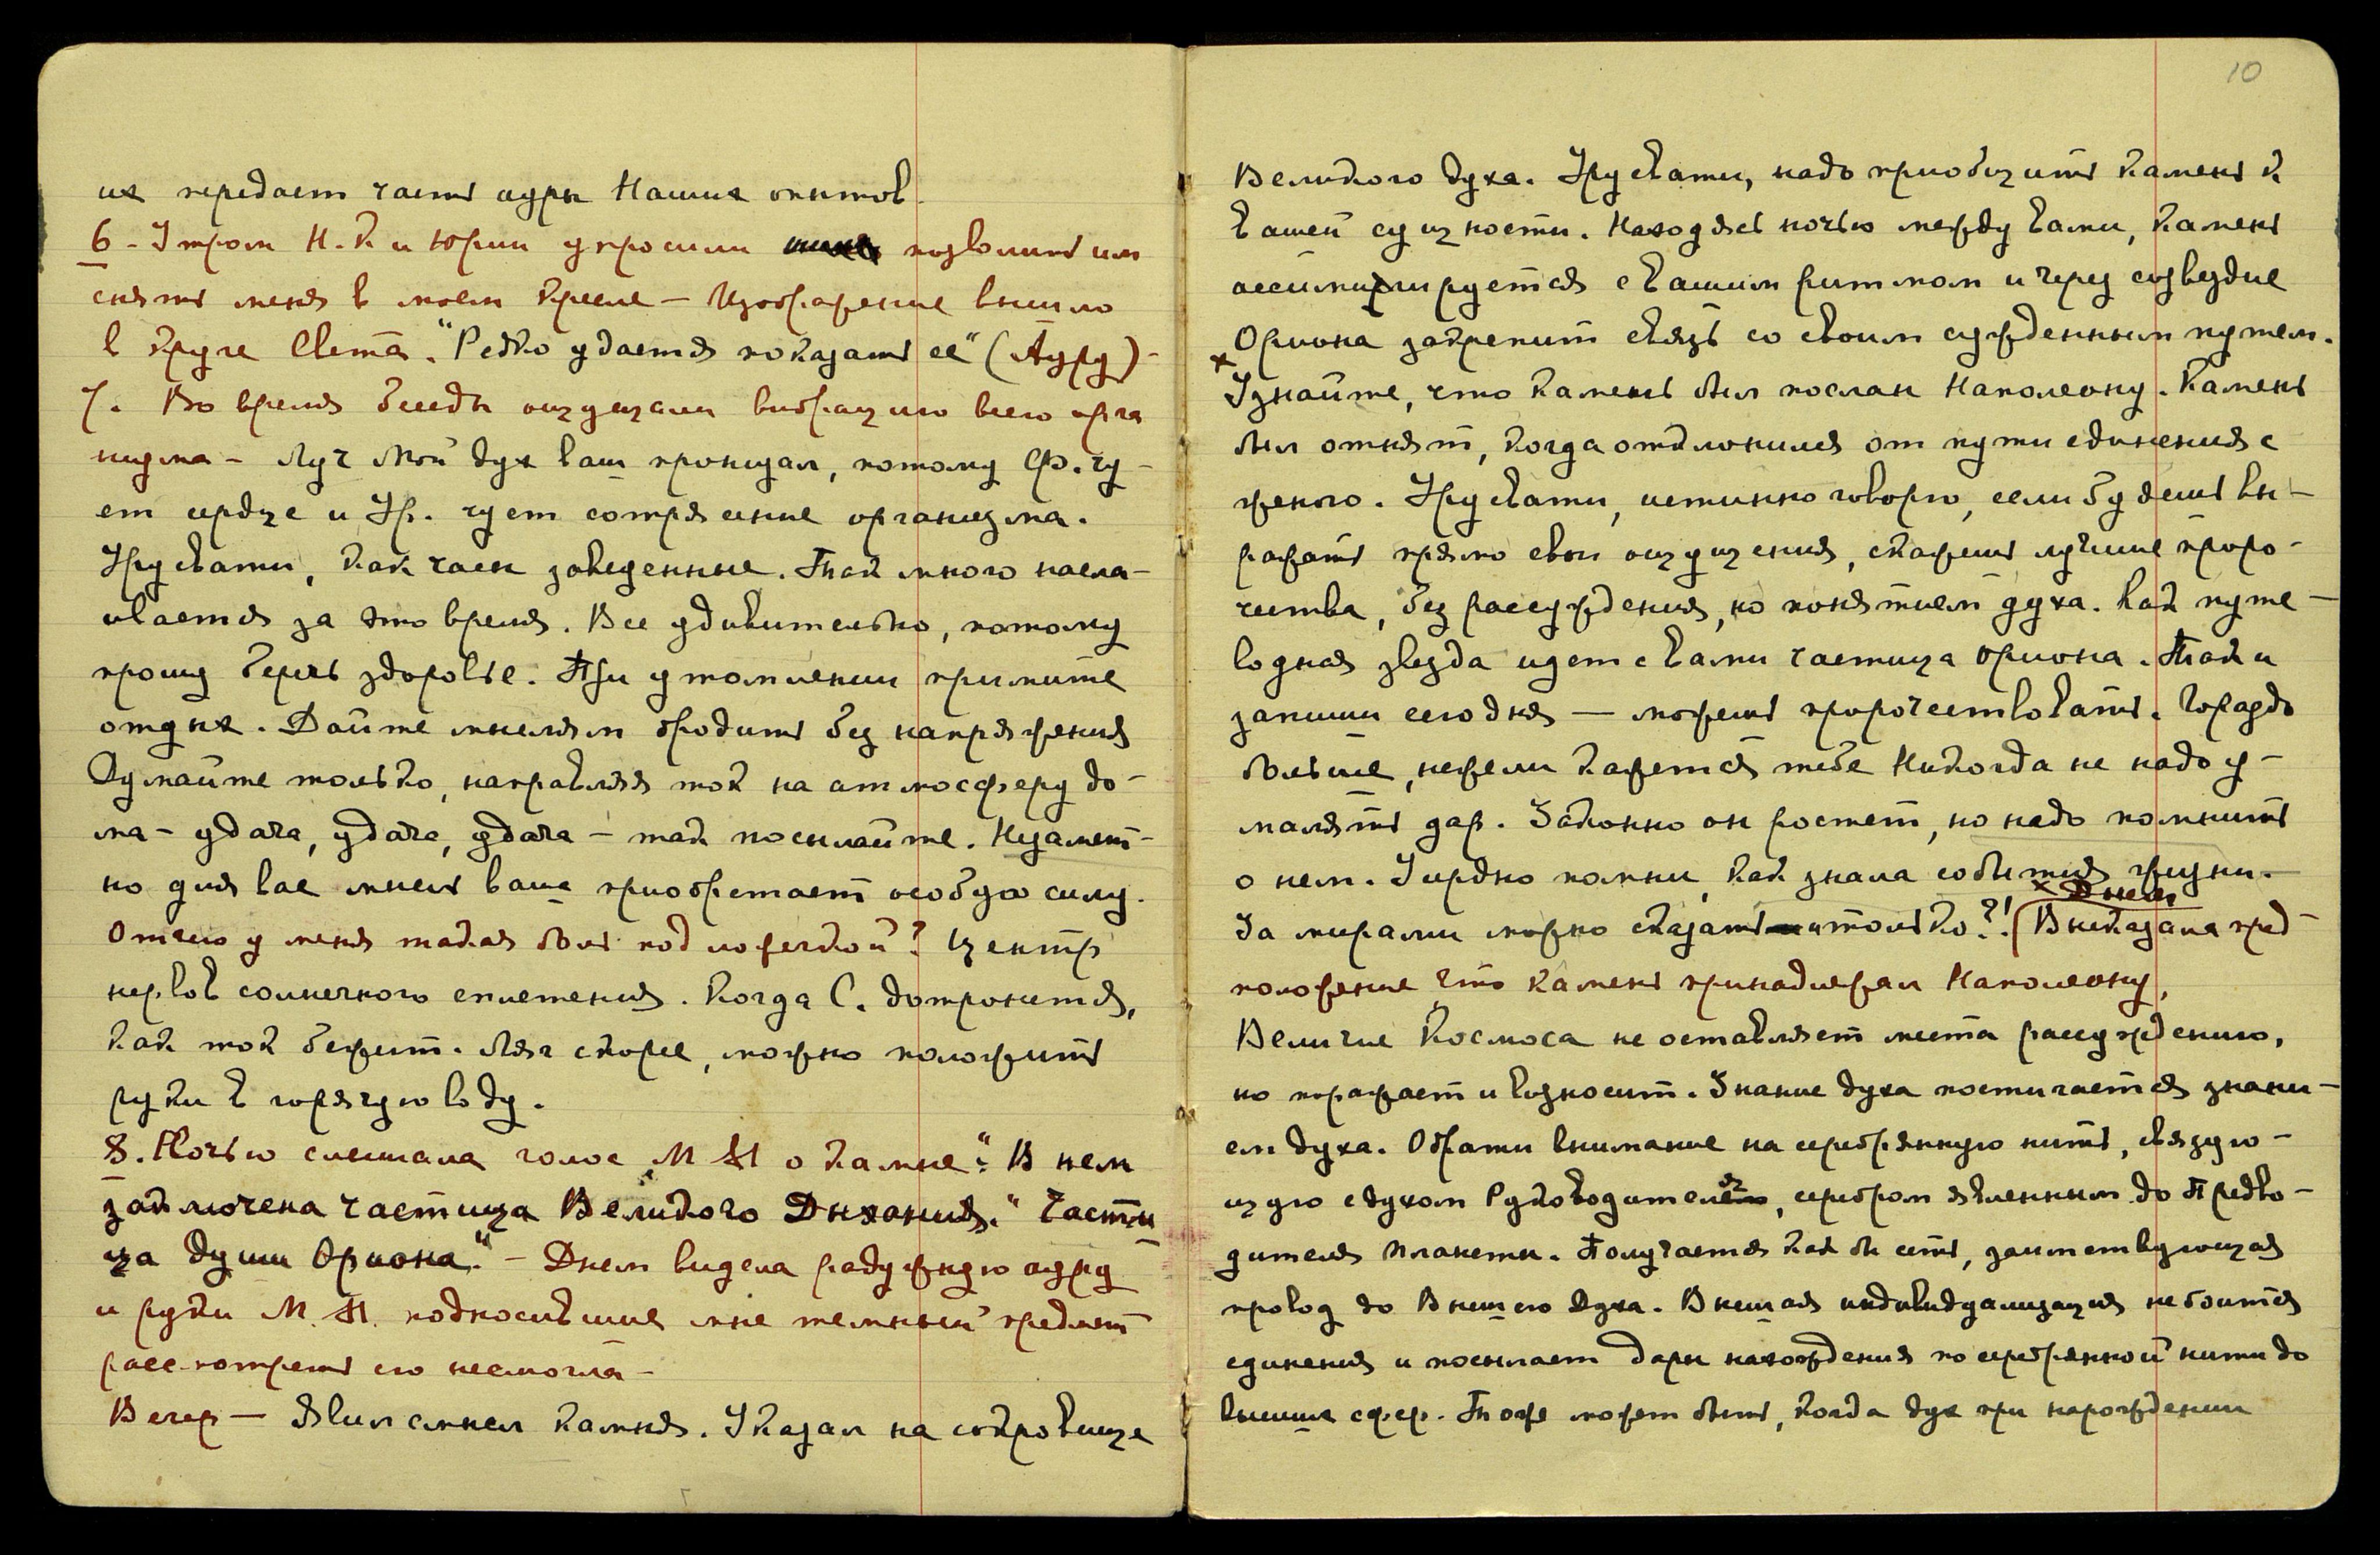 их передает часть ауры Наших опытов.
6 - Утром Н.К и Юрий упросили позволить им
снять меня в моем кресле — Изображение вышло
в круге Света. "Редко удается показать ее" (Ауру) -
7. Во время беседы ощущали вибрацию всего орга
низма - Луч Мой дух ваш пронизал, потому Ф. чу-
ет сердце и Ур. чует сотрясение организма.
Урусвати, как часы заведенные. Так много насла-
ивается за это время. Все удивительно, потому
прошу беречь здоровье. При утомлении примите
отдых. Дайте мыслям бродить без напряжения
Думайте только, направляя ток на атмосферу до-
ма - удача, удача, удача - так посылайте. Незамет-
но для вас мысль ваша приобретает особую силу.
Отчего у меня такая боль под ложечкой? Центр
нервов солнечного сплетения. Когда С. дотронется,
как ток бежит. Ляг скорее, можно положить
руки в горячую воду.
8. Ночью слышала голос М М о камне: "В нем
заключена частица Великого Дыхания." "Части
ца души Ориона." - Днем видела радужную ауру
и руки М. М. подносившие мне темный предмет
рассмотреть его несмогла -
Вечер — Явил смысл камня. Указал на сокровище
10
Великого духа. Урусвати, надо приобщить камень к
вашей сущности. Находясь ночью между вами, камень
ассимилируется с вашим ритмом и через созвездие
Ориона закрепит связь со своим сужденным путем.
x Узнайте, что камень был послан Наполеону. Камень
был отнят, когда отклонился от пути единения с
женою. Урусвати, истинно говорю, если будешь вы-
ражать прямо свои ощущения, скажешь лучшие проро-
чества, без рассуждения, но понятием духа. Как путе-
водная звезда идет с вами частица Ориона. Так и
запиши сегодня — можешь пророчествовать. Гораздо
больше, нежели кажется тебе Никогда не надо у-
малять дар. Законно он ростет, но надо помнить
о нем. Усердно помни, как знала события жизни.-
x Днем
За мирами можно сказать и только?! (Высказала пред-
положение что камень принадлежал Наполеону,
Величие Космоса не оставляет места рассуждению,
но поражает и возносит. Знание духа постигается знани-
ем духа. Обрати внимание на серебрянную нить, связую-
щую с духом Руководителя, серебром явленным до Предво-
дителя планеты. Получается как бы сеть, заимствующая
провод до Высшего Духа. Высшая индивидуализация не боится
единения и посылает дары нахождения по серебрянной нити до
высших сфер. Тоже может быть, когда дух при нарождении